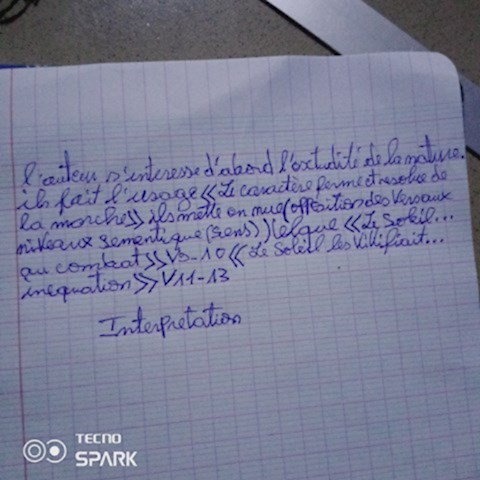 l'auteur s'interesse d'abord l'extudité de la nature.
ils fait l'usage « Le caractère ferme et resolue de
la marche» ils mette en nue (opposition des Versaux
niveaux sementique (sens)) telque « Le Soleil...
au combat» V9-10 « Le Soleil les Vilifiait...
inequation» V11-13
Interpretation
TECNO
SPARK